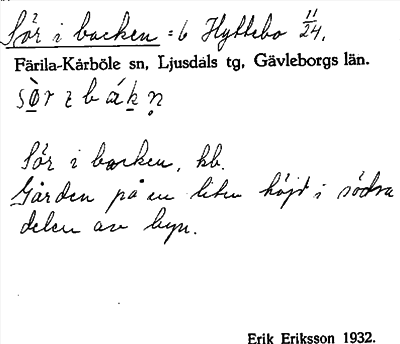 Sör i backen = b Hyttebo 11/24.
Färila-Kårböle sn, Ljusdals tg, Gävleborgs län.
sò̱r ɪ b á ḵ n̥
Sör i backen, hb.
Gården på en liten höjd i södra
delen av byn.
Erik Eriksson 1932.